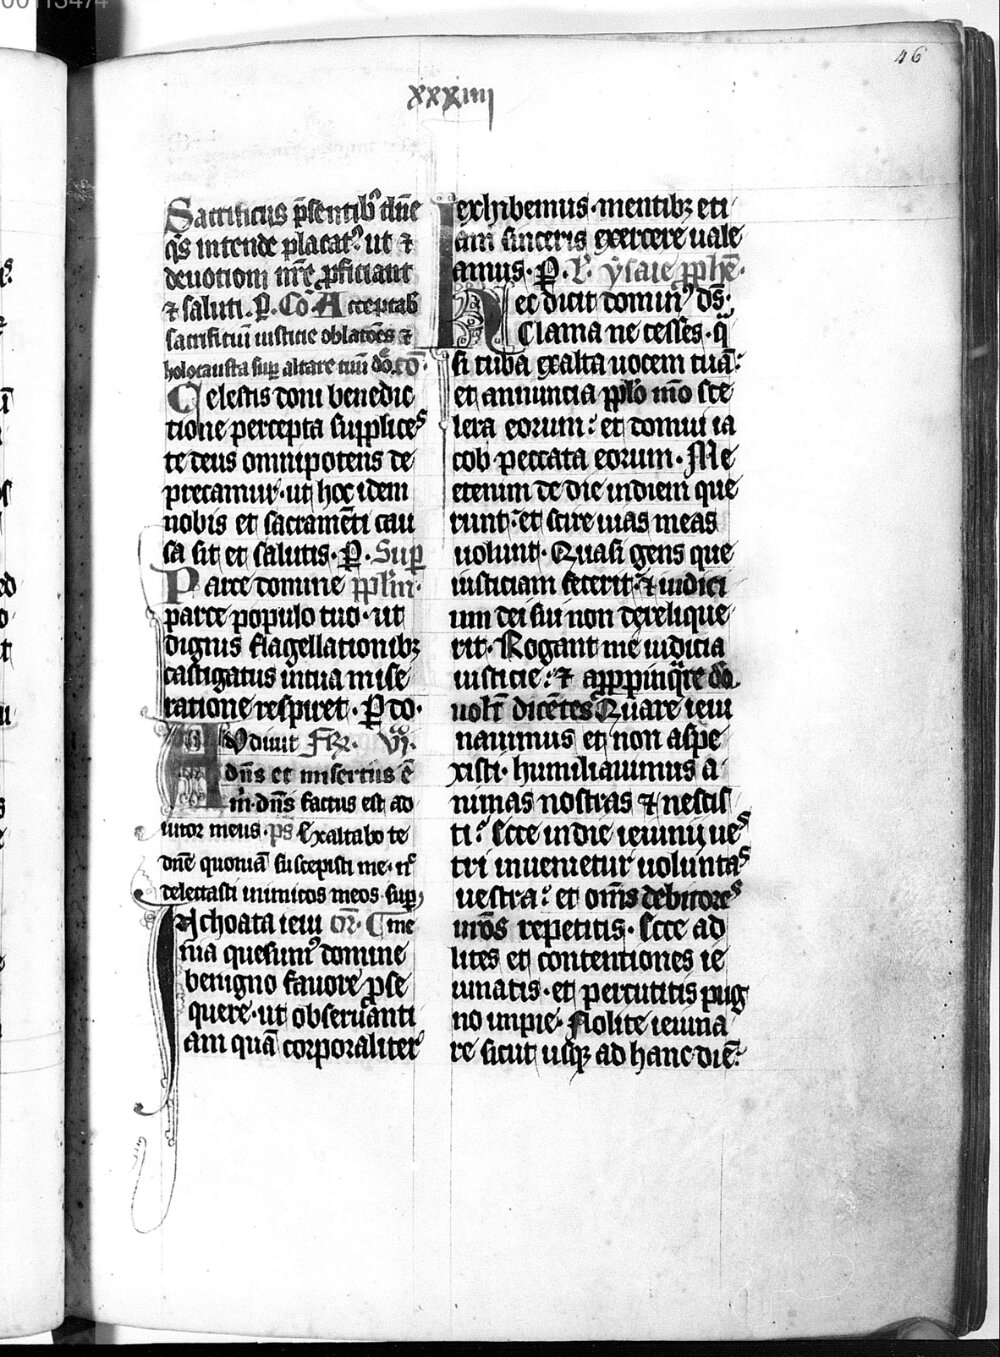 46
xxxiiij
Sacrificiis p̄sentibꝰ dn̄e
q̄s intende placatꝰ ut ⁊
deuotioni nr̄e ꝓficiant
⁊ saluti. P. Cō. Acceptab
sacrificiū iusticie oblatōēs ⁊
holocausta suꝑ altare tuū dō. cō.
Celestis doni benedic
tione percepta supplices
te deus omnipotens de
precamur· ut hoc idem
nobis et sacramēti cau
sa sit et salutis. P. Sup
Parce domine ppl'm.
parce populo tuo· ut
dignis flagellationibꝫ
castigatus in tua mise
ratione respiret. P do.
Audiuit Fr̄. VI.
dn̄s et misertus ē
m̄· dn̄s factus est ad
iutor meus. ps Exaltabo te
dn̄e quoniā suscepisti me· n̄
delectasti inimicos meos sup
Inchoata ieiu or̄.
nia quesumꝰ domine
benigno fauore ꝓse
quere· ut obseruanti
am quā corporaliter
exhibemus· mentibꝫ eti
am sinceris exercere uale
amus. P. L. ysaie ꝓphē.
Hec dicit dominꝰ ds:
Clama ne cesses· q̄
si tuba exalta uocem tuā:
et annuncia pplo mō sce
lera eorum: et domui ia
cob peccata eorum. Me
etenim de die in diem que
runt: et scire uias meas
uolunt. Quasi gens que
iusticiam fecerit: ⁊ iudici
um dei sui non derelique
rit. Rogant me iudicia
iusticie: ⁊ appropinq̄re dō
uolt̄ dicētes Quare ieiu
nauimus et non aspe
xisti· humiliauimus a
nimas nostras ⁊ nescis
ti? Ecce in die ieiunij ues
tri inuenietur uoluntas
uestra: et om̄s debitores
ur̄os repetitis. Ecce ad
lites et contentiones ie
iunatis· et percutitis pug
no impie. Nolite ieiuna
re sicut usqꝫ ad hanc diē: